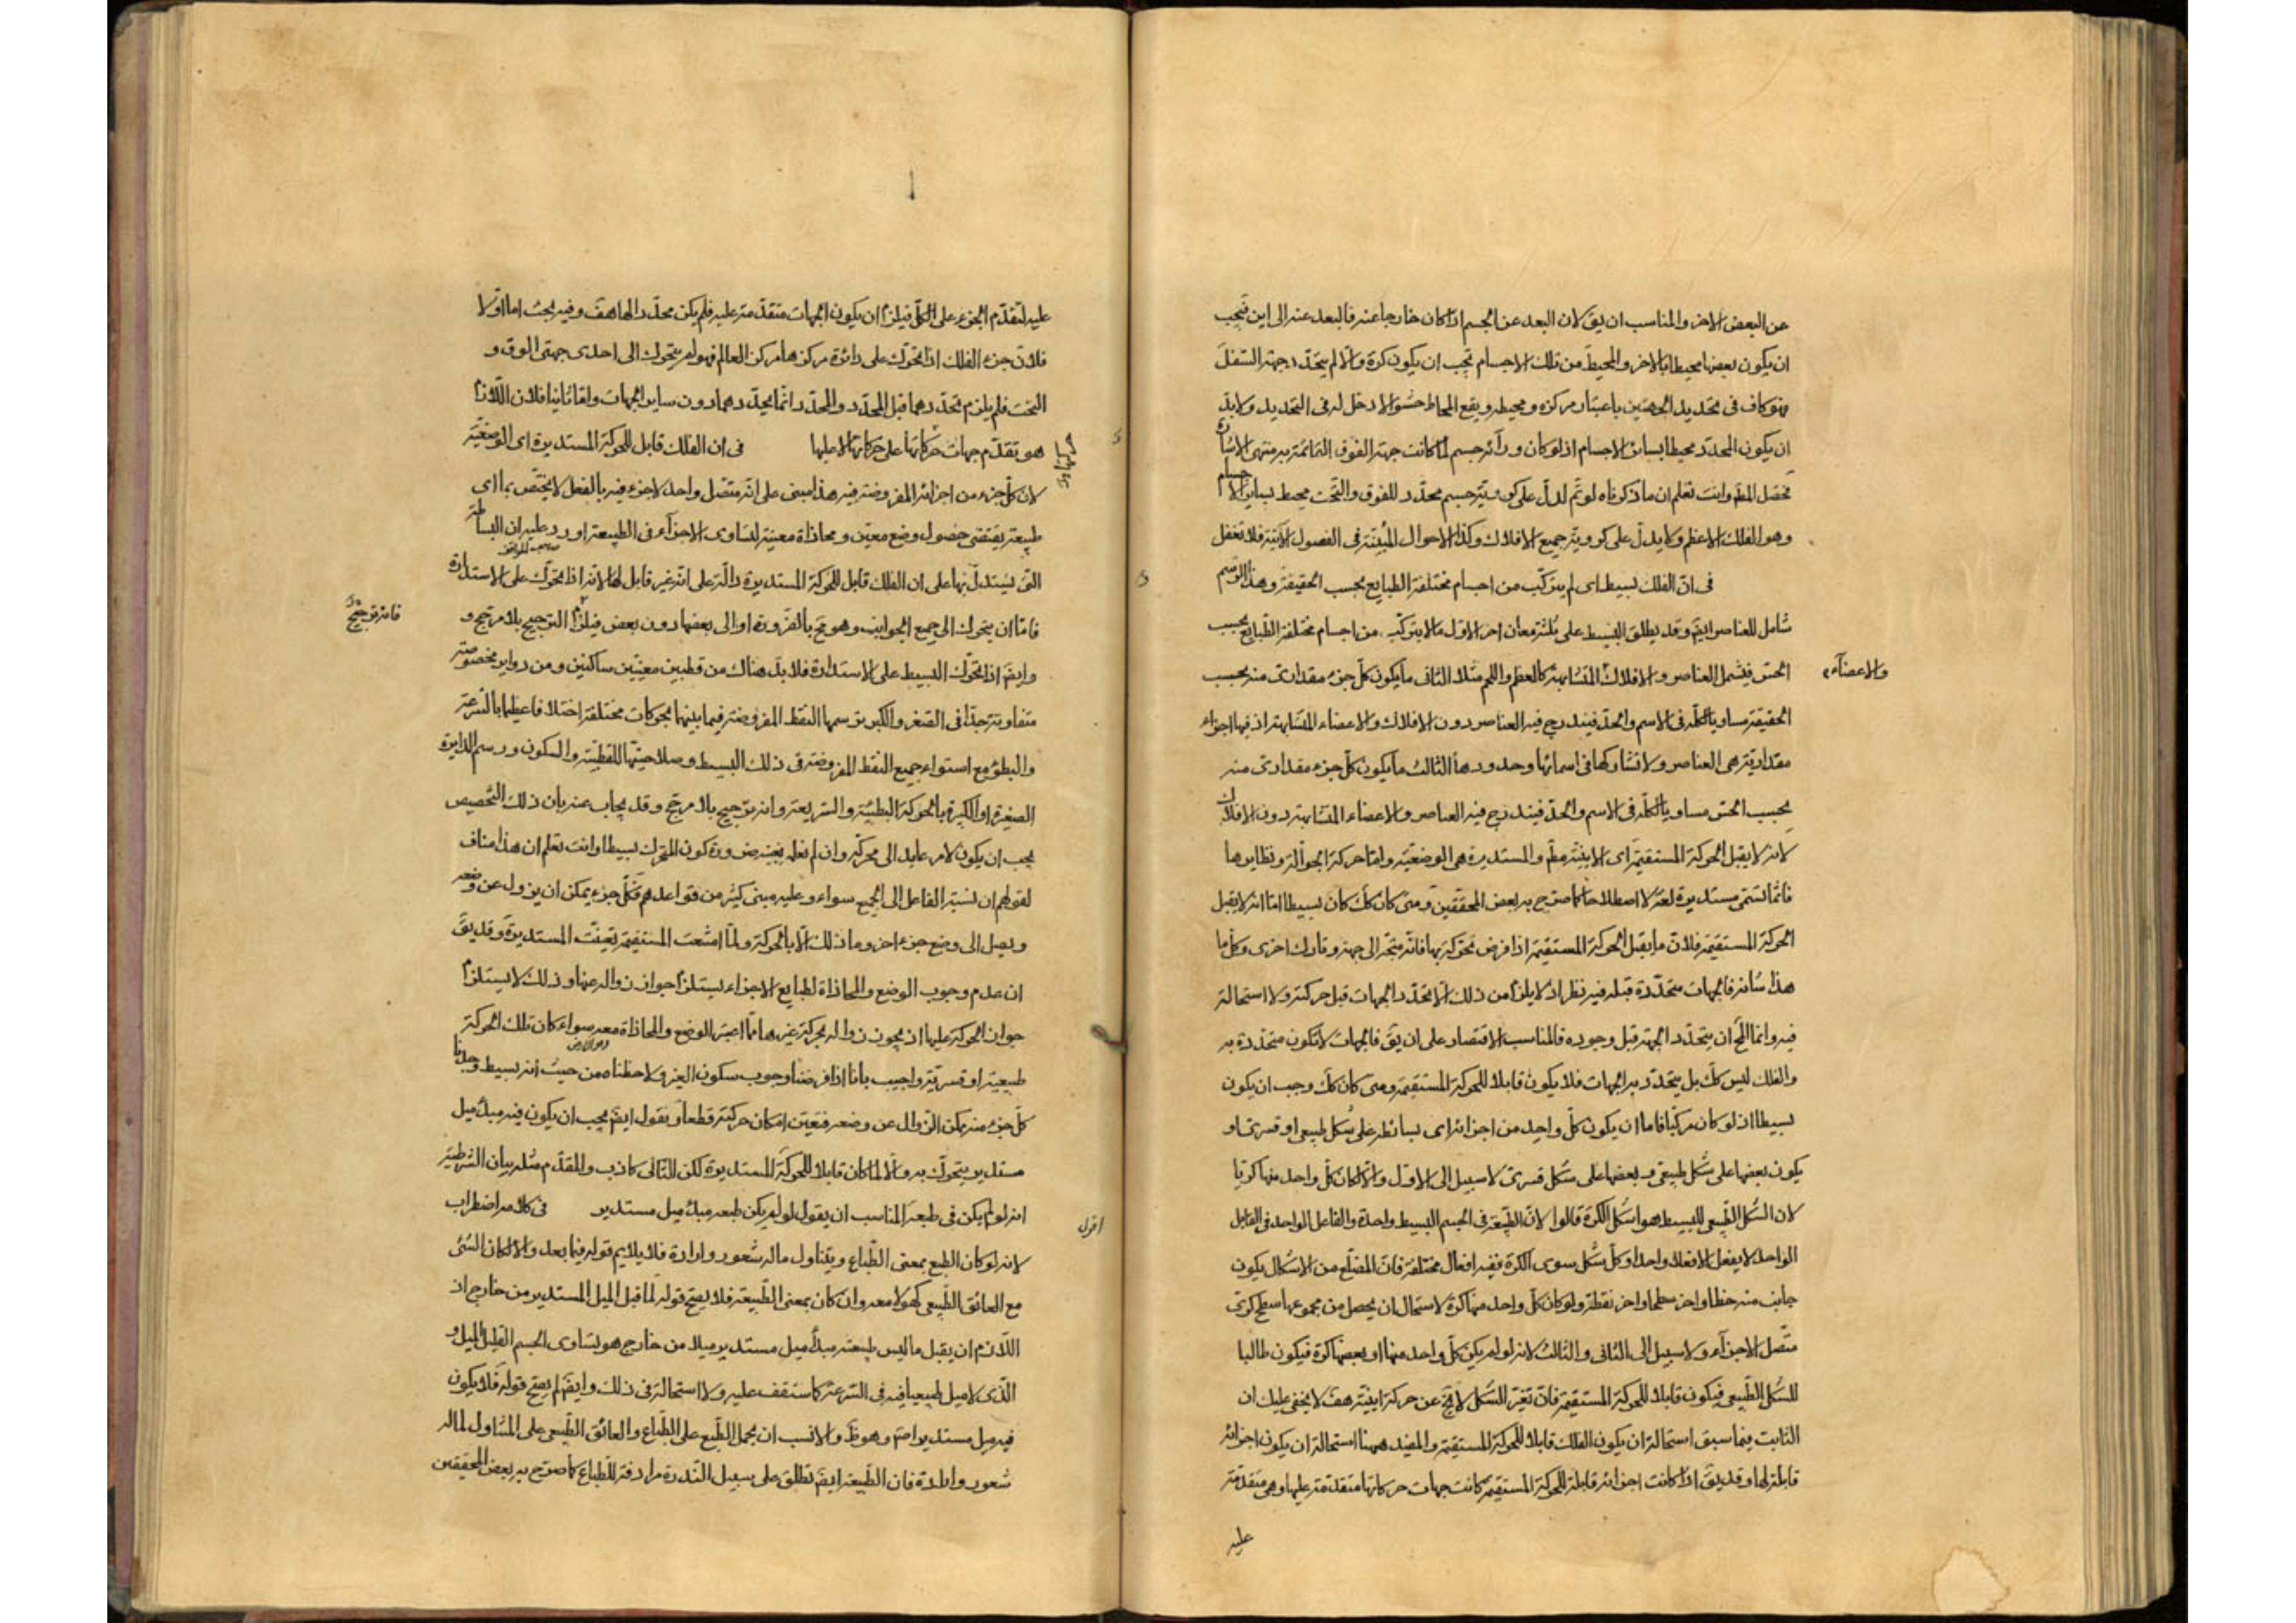 عن البعض الاخر والمناسب ان يق لان البعد عن الجسم اذا كان خارجا عنه فالبعد عنه الى اين فيجب
ان يكون بعضها محيطا بالاخر والمحيط من تلك الاجسام يجب ان يكون كرة والا لم يتحدد جهة السفل
وهو كاف فى تحديد الجهتين باعتبار مركزه ومحيطه ويقع المحاط حشوا لا دخل له فى التحديد ولا بد
ان يكون المحدد محيطا بسائر الاجسام اذ لو كان ورآئه جسم لما كانت جهة الفوق القائمة به منتهى الاشارة
فحصل المط وانت تعلم ان ما ذكرناه لو تم لدل على كروية جسم محدد للفوق والتحت محيط بساير الاجسام
وهو الفلك الاعظم ولا يدل على كروية جميع الافلاك وكذا الاحوال المبينة فى الفصول الاتية فلا تغفل
فى ان الفلك بسيط اى لم يتركب من اجسام مختلفة الطبايع بحسب الحقيقة وهذا الرسم
شامل للعناصر ايض وقد يطلق البسيط على ثلثة معان اخر الاول ما لا يتركب من اجسام مختلفة الطبايع بحسب
الحس فيشمل العناصر والافلاك المتشابهة كالعظم واللحم مثلا الثانى ما يكون كل جزء مقدارى منه بحسب
والاعضآء
الحقيقة مساويا لكله فى الاسم والحد فيندرج فيه العناصر دون الافلاك والاعضاء المتشابهة اذ فيها اجزاء
مقدارية هى العناصر ولا تشاركها فى اسمائها وحدودها الثالث ما يكون كل جزء مقدارى منه
بحسب الحس مساويا لكله فى الاسم والحد فيندرج فيه العناصر والاعضاء المتشابهة دون الافلاك
لانه لا يقبل الحركة المستقيمة اى الاينية مط والمستديرة هى الوضعية واما حركة الجوالة ونظايرها
فانما تسمى مستديرة لغة لا اصطلاحا كما صرح به بعض المحققين ومتى كان كك كان بسيطا اما انه لا يقبل
الحركة المستقيمة فلان ما يقبل الحركة المستقيمة اذا فرض تحركه بها فانه متجه الى جهة وتارك اخرى وكل ما
هذا شانه فالجهات متحددة قبله فيه نظر اذ لا يلزم من ذلك الا تحدد الجهات قبل حركته ولا استحالة
فيه وانما المح ان يتحدد الجهة قبل وجوده فالمناسب الاقتصار على ان يق فالجهات لا تكون متحددة به
والفلك ليس كك بل يتحدد به الجهات فلا يكون قابلا للحركة المستقيمة ومتى كان كك وجب ان يكون
بسيطا اذ لو كان مركبا فاما ان يكون كل واحد من اجزائه اى بسائطه على شكل طبيعى او قسرى او
يكون بعضها على شكل طبيعى وبعضها على شكل قسرى لا سبيل الى الاول والا لكان كل واحد منها كريا
لان الشكل الطبيعى للبسيط هو الشكل الكرة قالوا لان الطبيعة فى الجسم البسيط واحدة والفاعل الواحد فى القابل
الواحد لا يفعل الا فعلا واحدا وكل شكل سوى الكرة ففيه افعال مختلفة فان المضلع من الاشكال يكون
جانب منه خطا واخر سطحا واخر نقطة ولو كان كل واحد منها كرة لاستحال ان يحصل من مجموعها سطح كرى
متصل الاجزآء ولا سبيل الى الثانى والثالث لانه لو لم يكن كل واحد منها او بعضها كرة فيكون طالبا
للشكل الطبيعى فيكون قابلا للحركة المستقيمة فان تغير الشكل لا يخ عن حركة اينية هف لا يخفى عليك ان
الثابت فيما سبق استحالة ان يكون الفلك قابلا للحركة المستقيمة والمفيد ههنا استحالة ان يكون اجزائه
قابلة لها وقد يق اذا كانت اجزائه قابلة للحركة المستقيمة كانت جهات حركاتها متقدمة عليها وهى متقدمة
عليه
عليه لتقدم الجزء على الكل فيلزم ان يكون الجهات متقدمة عليه فلم يكن محددا لها هف وفيه بحث اما اولا
فلان جزء الفلك اذا تحرك على دائرة مركزها مركز العالم فهو لم يتحرك الى احدى جهتى الفوق و
التحت فلم يلزم تحددهما قبل المحدد والمحدد انما يحددهما دون ساير الجهات واما ثانيا فلان اللازم
هو تقدم جهات حركاتها على حركاتها لا عليها فى ان الفلك قابل للحركة المستديرة اى الوضعية
لان كل جزء من اجزائه المفروضة فيه هذا مبنى على انه متصل واحد لا جزء فيه بالفعل لا يختص بما اى
طبيعة يقتضى حصول وضع معين ومحاذاة معينة لتساوى الاجزآء فى الطبيعة اورد عليه ان البساطة
صاحب المواقف
التى يستدل بها على ان الفلك قابل للحركة المستديرة دالة على انه غير قابل لها لانه اذا تحرك على الاستدارة
فاما ان يتحرك الى جميع الجوانب وهو مح بالضرورة او الى بعضها دون بعض فيلزم الترجيح بلا مرجح و
فانه ترجيح
وايض اذا تحرك البسيط على الاستدارة فلا بد هناك من قطبين معينين ساكنين ومن دواير مخصوصة
متفاوتة جدا فى الصغر والكبر ترسمها النقط المفروضة فيما بينها بحركات مختلفة اختلافا عظيما بالسرعة
والبطؤ مع استواء جميع النقط المفروضة فى ذلك البسيط وصلاحيتها للقطبية والسكون ورسم الدايرة
الصغيرة او الكبيرة بالحركة البطيئة والسريعة وانه ترجيح بلا مرجح وقد يجاب عنه بان ذلك التخصيص
يجب ان يكون لامر عايد الى محركه وان لم نعلمه بعينه ضرورة كون المتحرك بسيطا وانت تعلم ان هذا مناف
لقولهم ان نسبة الفاعل الى الجميع سواء وعليه مبنى كثير من قواعدهم فكل جزء يمكن ان يزول عن وضعه
ويصل الى وضع جزء اخر وما ذلك الا بالحركة ولما امتنعت المستقيمة تعينت المستديرة وقد يق
ان عدم وجوب الوضع والمحاذاة لطبايع الاجزاء يستلزم جواز زواله عنها وذلك لا يستلزم
جواز الحركة عليها اذ يجوز زواله بحركة غيرها مما اعتبر الوضع والمحاذاة معه سواء كان تلك الحركة
طبيعية او قسرية واجيب بانا اذا فرضنا وجوب سكون الغير ولاحظناه من حيث انه بسيط وجدنا
كل جزء منه يمكن الزوال عن وضعه فتعين امكان حركته قطعا ونقول ايض يجب ان يكون فيه مبدأ ميل
مستدير يتحرك به والا لما كان قابلا للحركة المستديرة لكن التالى كاذب والمقدم مثله بيان الشرطية
انه لو لم يكن فى طبعه المناسب ان يقول لو لم يكن طبعه مبدأ ميل مستدير فى كلامه اضطراب
اقول
لانه لو كان الطبع بمعنى الطباع ويتناول ماله شعور وارادة فلا يلايم قوله فيما بعد والا لكان الشئ
مع العائق الطبيعى كهو لا معه وان كان بمعنى الطبيعة فلا يصح قوله لما قبل الميل المستدير من خارج اذ
اللازم ان يقبل ما ليس طبيعته مبدأ ميل مستدير ميلا من خارج هو تساوى الجسم القليل الميل و
الذى لا ميل طبيعيا فيه فى السرعة كما ستقف عليه ولا استحالة فى ذلك وايض لم يصح قوله فلا يكون
فيه ميل مستدير اصلا وهو ظ والانسب ان يحمل الطبع على الطباع والعائق الطبيعى على المتناول لماله
شعور وارادة فان الطبيعة ايض تطلق على سبيل الندرة مرادفة للطباع كما صرح به بعض المحققين